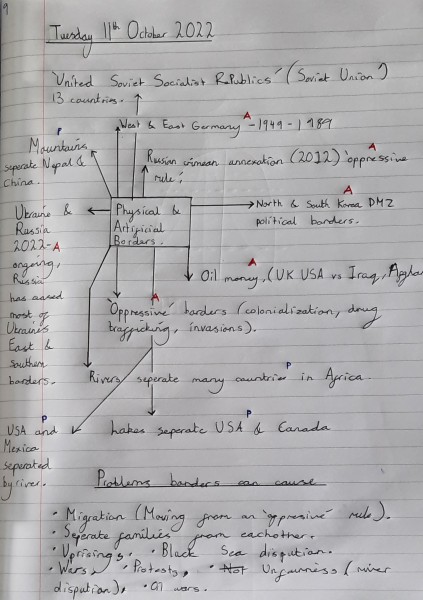 9
Tuesday 11th October 2022
'United Soviet Socialist Republics' (Soviet Union)
13 countries.
A
West & East Germany - 1949 - 1989
P
Mountains
seperate Nepal &
China.
A
Russian crimean annexation (2012) 'oppressive
rule';
A
North & South Korea DMZ
political borders.
Physical &
Artificial
Borders.
Ukraine &
Russia
2022-A
ongoing,
Russia
has
most of
Ukraine's
East &
southern
borders.
A
Oil money, (UK USA vs Iraq, Afghan
A
'Oppressive' borders (colonialization, drug
trafficking, invasions).
P
Rivers seperate many countries in Africa.
P
USA and
Mexico
seperated
by river.
P
Lakes seperate USA & Canada
Problems borders can cause
· Migration (Moving from an 'oppressive' rule).
· Seperate families from eachother.
· Uprisings, · Black Sea dispution.
· Wars, · Protests, · Not Unfairness (river
dispution), · Oil wars.